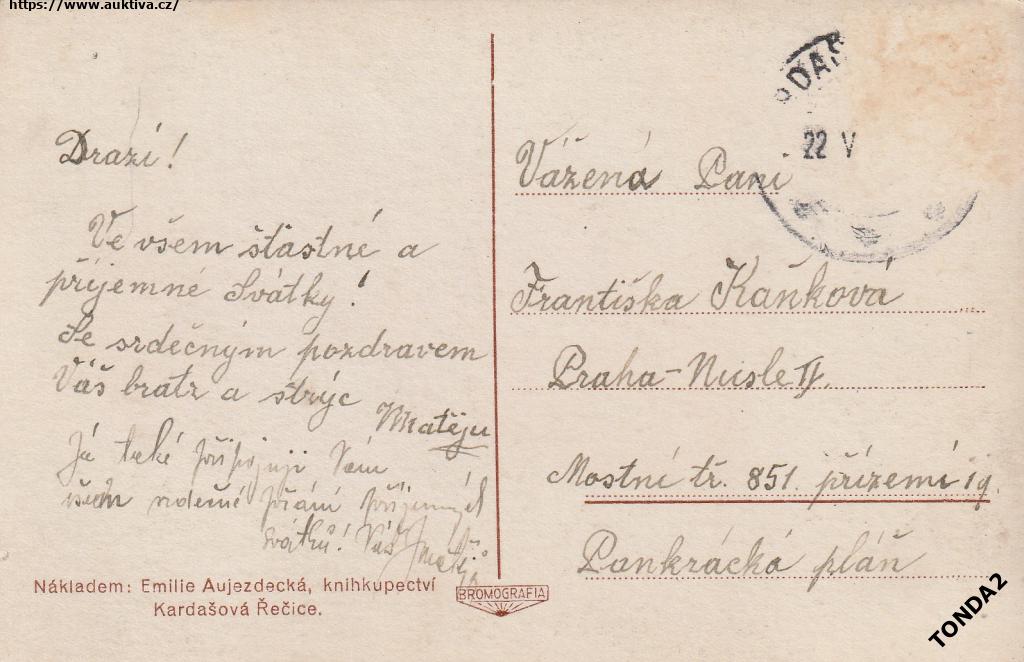 https://www.auktiva.cz/
Drazí!
Ve všem šťastné a
příjemné Svátky!
Se srdečným pozdravem
Váš bratr a strýc
Matěju
Já také připojuji Vám
všem srdečné přání příjemných
svátků! Váš
Nákladem: Emilie Aujezdecká, knihkupectví
Kardašová Řečice.
BROMOGRAFIA
22 V
Vážená Paní
Františka Kaňková
Praha-Nusle II.
Mostní tř. 851. přízemí
Pankrácká pláň
TONDA2